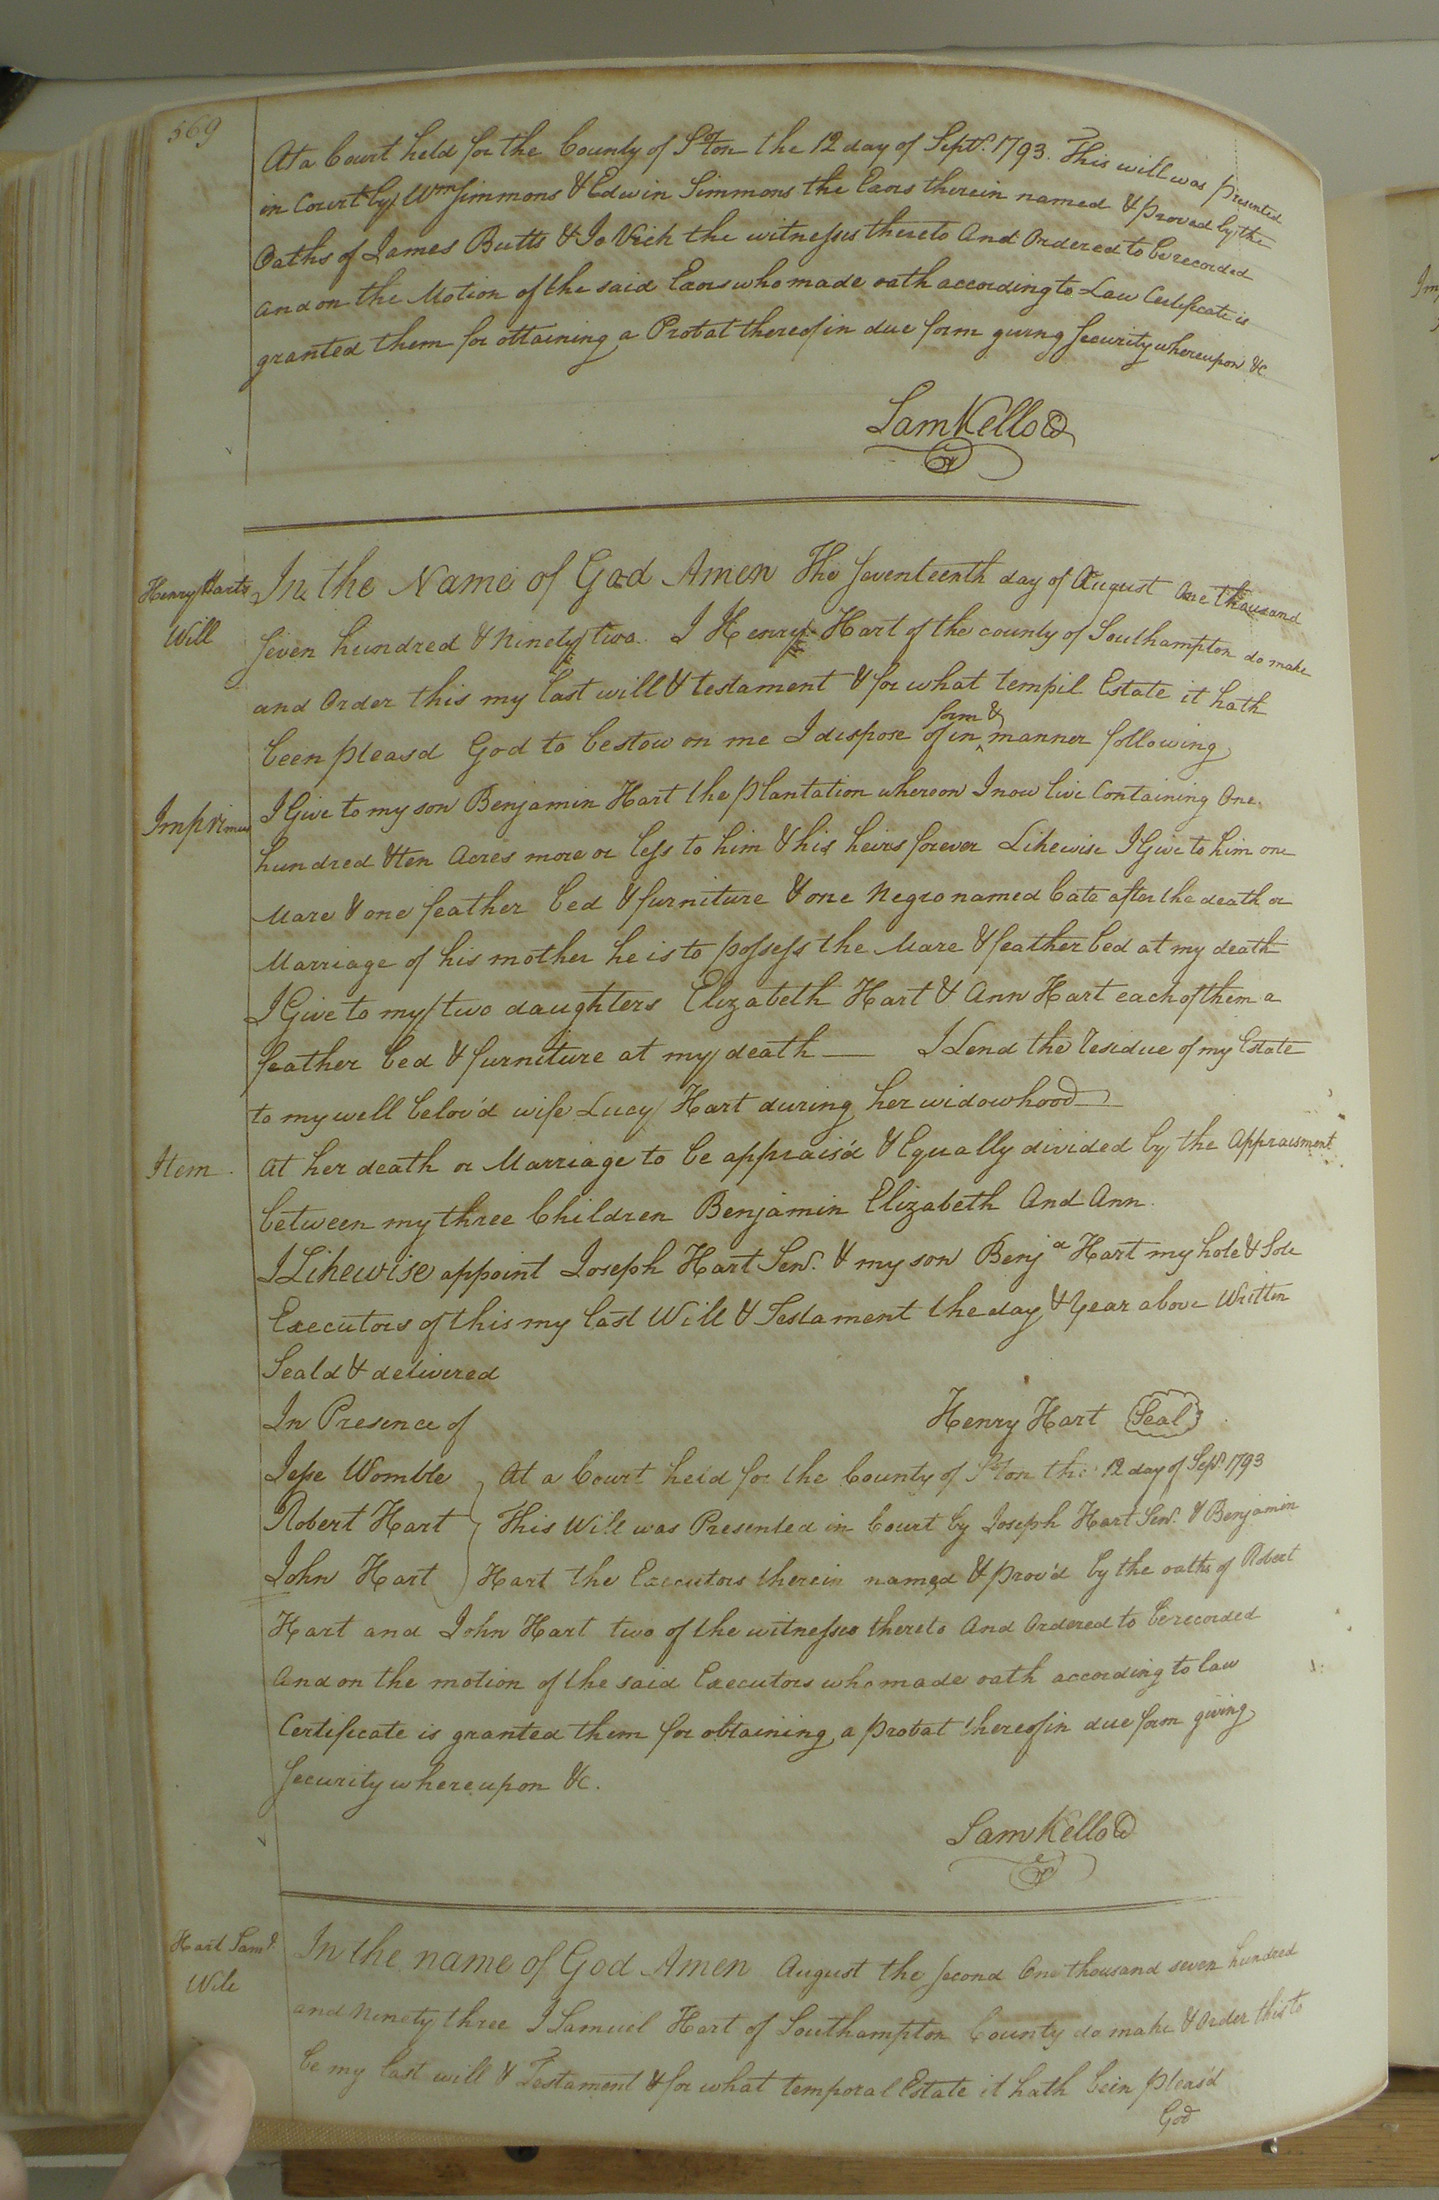 569
At a Court held for the County of Sºton the 12 day of Septr. 1793. This will was presented
in Court by Wm Simmons & Edwin Simmons the Exors therein named & proved by the
Oaths of James Butts & Jo Vick the witnesses thereto And Ordered to be recorded
and on the Motion of the said Exors who made oath according to Law Certificate is
granted them for obtaining a Probat thereof in due form giving Security whereupon &c
Sam Kello
Henry Harts
Will
In the Name of God Amen The Seventeenth day of August One thousand
Seven hundred & Ninety two. I Henry Hart of the county of Southampton do make
and Order this my last will & testament & for what tempil Estate it hath
been pleasd God to bestow on me I dispose of in form & manner following
Imprimus
I Give to my son Benjamin Hart the plantation whereon I now live Containing One
hundred & ten Acres more or less to him & his heirs forever Likewise I Give to him one
Mare & one feather bed & furniture & one Negro named Cate after the death or
Marriage of his mother he is to possess the Mare & feather bed at my death
I Give to my two daughters Elizabeth Hart & Ann Hart each of them a
feather bed & furniture at my death — I Lend the Residue of my Estate
to my well belov'd wife Lucy Hart during her widowhood
Item
At her death or Marriage to be apprais'd & Equally divided by the Appraisment
between my three Children Benjamin Elizabeth And Ann.
I Likewise appoint Joseph Hart Senr. & my son Benja Hart my hole & Sole
Executors of this my last Will & Testament the day & Year above Written
Seald & delivered
In Presence of
Henry Hart Seal
Jesse Womble
Robert Hart
John Hart
At a Court held for the County of Sºton the 12 day of Sepr. 1793
This Will was Presented in Court by Joseph Hart Senr. & Benjamin
Hart the Executors therein named & prov'd by the oaths of Robert
Hart and John Hart two of the witnesses thereto And Ordered to be recorded
And on the motion of the said Executors who made oath according to law
Certificate is granted them for obtaining a probat thereof in due form giving
Security whereupon &c.
Sam Kello
Hart Saml.
Will
In the name of God Amen August the Second One thousand seven hundred
and Ninety three I Samuel Hart of Southampton County do make & Order this to
be my last will & Testament & for what temporal Estate it hath bein pleas'd
God